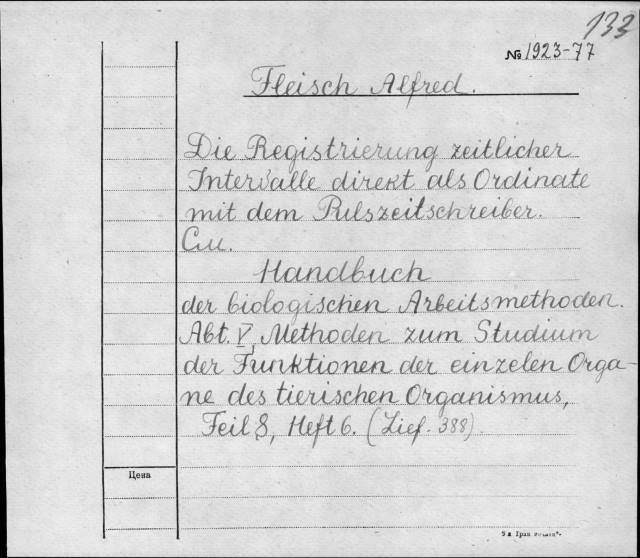 133
№ 1923-77
Fleisch Alfred.
Die Registrierung zeitlicher
Intervalle direkt als Ordinate
mit dem Pulszeitschreiber.
См.
Handbuch
der biologischen Arbeitsmethoden.
Abt. V, Methoden zum Studium
der Funktionen der einzelen Orga-
ne des tierischen Organismus,
Teil 8, Heft 6. (Lief. 388).
Цена